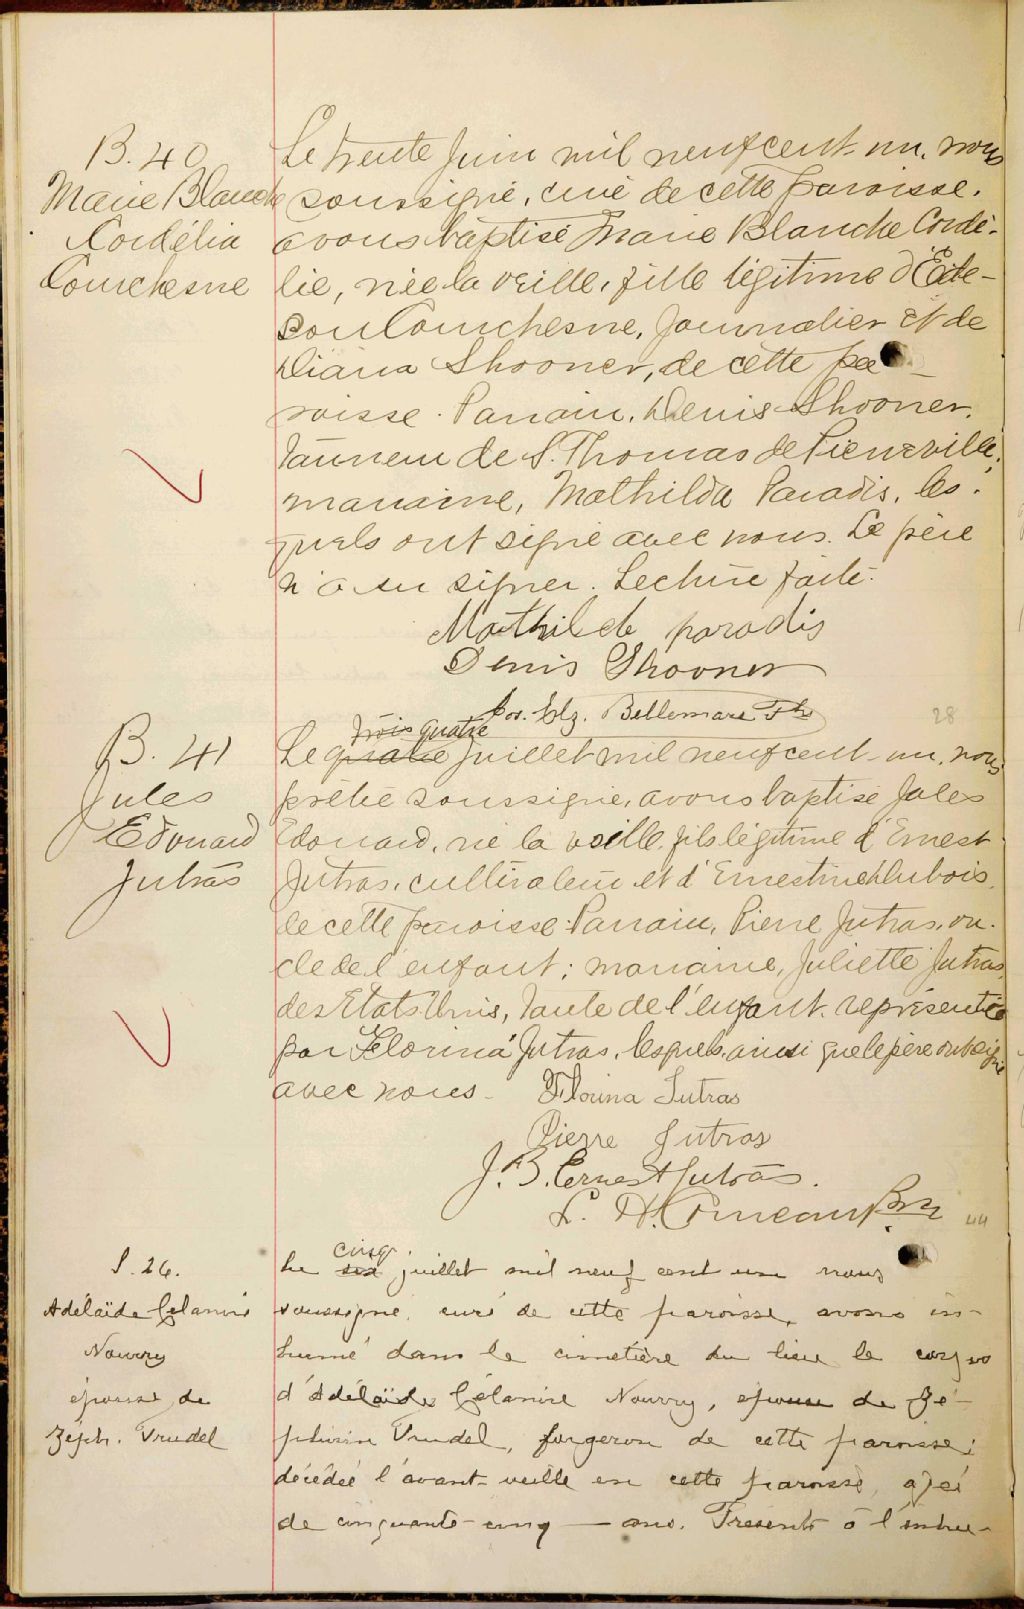 B. 40
Marie Blanche
Cordélia
Courchesne
Le trente Juin mil neuf cent-un, nous
soussigné, curé de cette paroisse.
avons baptisé Marie Blanche Cordé-
lie, née la veille, fille légitime d'
son Courchesne, Journalier et de
Diana Shooner, de cette pa-
roisse. Parrain, Denis Shooner,
Tanneur de S. Thomas de Pierreville;
marraine, Mathilda Paradis, les-
quels ont signé avec nous. Le père
n'a su signer. Lecture faite.
Mathilde paradis
Denis Shooner
Jos. Elz. Bellemare Ptre
28
B. 41
Jules
Edouard
Jutras
trois quatre
Le quatre juillet mil neuf cent-un, nous
prêtre soussigné, avons baptisé Jules
Edouard, né la veille, fils légitime d'Ernest
Jutras, cultivateur et d'Ernestine Dubois,
de cette paroisse. Parrain, Pierre Jutras, on-
cle de l'enfant; marraine, Juliette Jutras,
des Etats Unis, Tante de l'enfant représentée
par Florina Jutras, lesquels ainsi que le père ont signé
avec nous. Florina Jutras
Pierre Jutras
J. B. Ernest Jutras.
L. A. Comeau Ptre
44
S. 26.
Adélaïde Gélanire
Nourry
épouse de
Zéph. Trudel
cinq
Le six juillet mil neuf cent un nous
soussigné, curé de cette paroisse, avons in-
humé dans le cimetière du lieu le corps
d'Adélaïde Gélanire Nourry, épouse de Zé-
phirin Trudel, forgeron de cette paroisse;
décédée l'avant-veille en cette paroisse, âgée
de cinquante-cinq — ans. Présents à l'inhu-